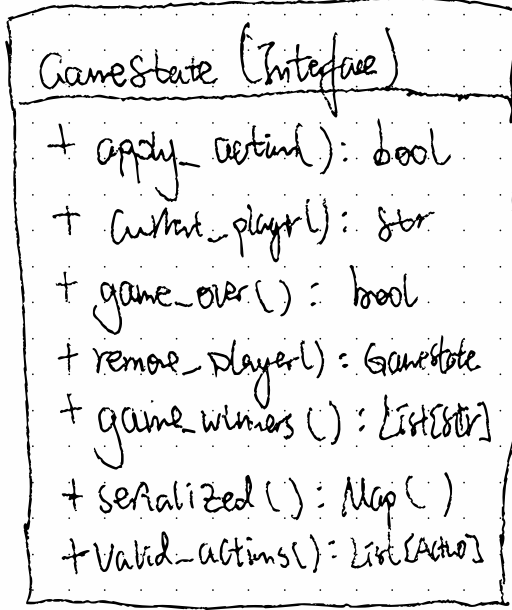 GameState (Interface)
+ apply_action(): bool
+ current_player(): str
+ game_over(): bool
+ remove_player(): GameState
+ game_winners(): List[str]
+ serialized(): Map()
+ valid_actions(): List[Action]